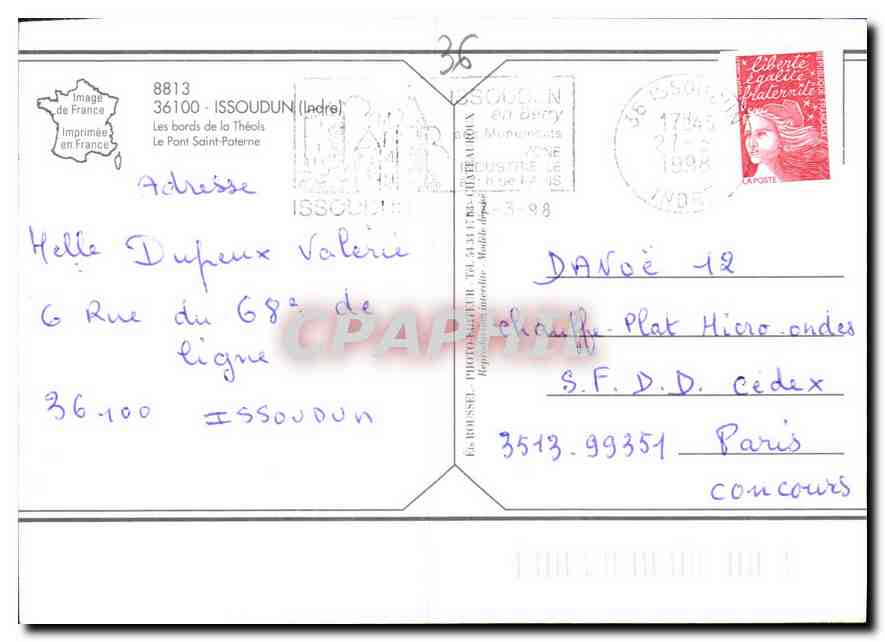 36
8813
36100 - ISSOUDUN (Indre)
Les bords de la Théols
Le Pont Saint-Paterne
Image
de France
Imprimée
en France
Adresse
Melle Dupeux Valérie
6 Rue du 68e de
ligne
36-100 ISSOUDUN
ISSOUDUN
ISSOUDUN
en Berry
ses Monuments
ZONE
INDUSTRIELLE
-3-98
36 ISSOUDUN
17H45
27-
1998
INDRE
liberté
égalité
fraternité
REPUBLIQUE FRANCAISE
LA POSTE
Ets ROUSSEL - PHOTO-EDITEUR - Tél. 54.34.17.83 - CHATEAUROUX
Reproduction interdite - Modèle déposé
DANOË 12
Chauffe-Plat Micro-ondes
S.F.D.D. Cédex
3513-99351 Paris
concours
CPAPHIL